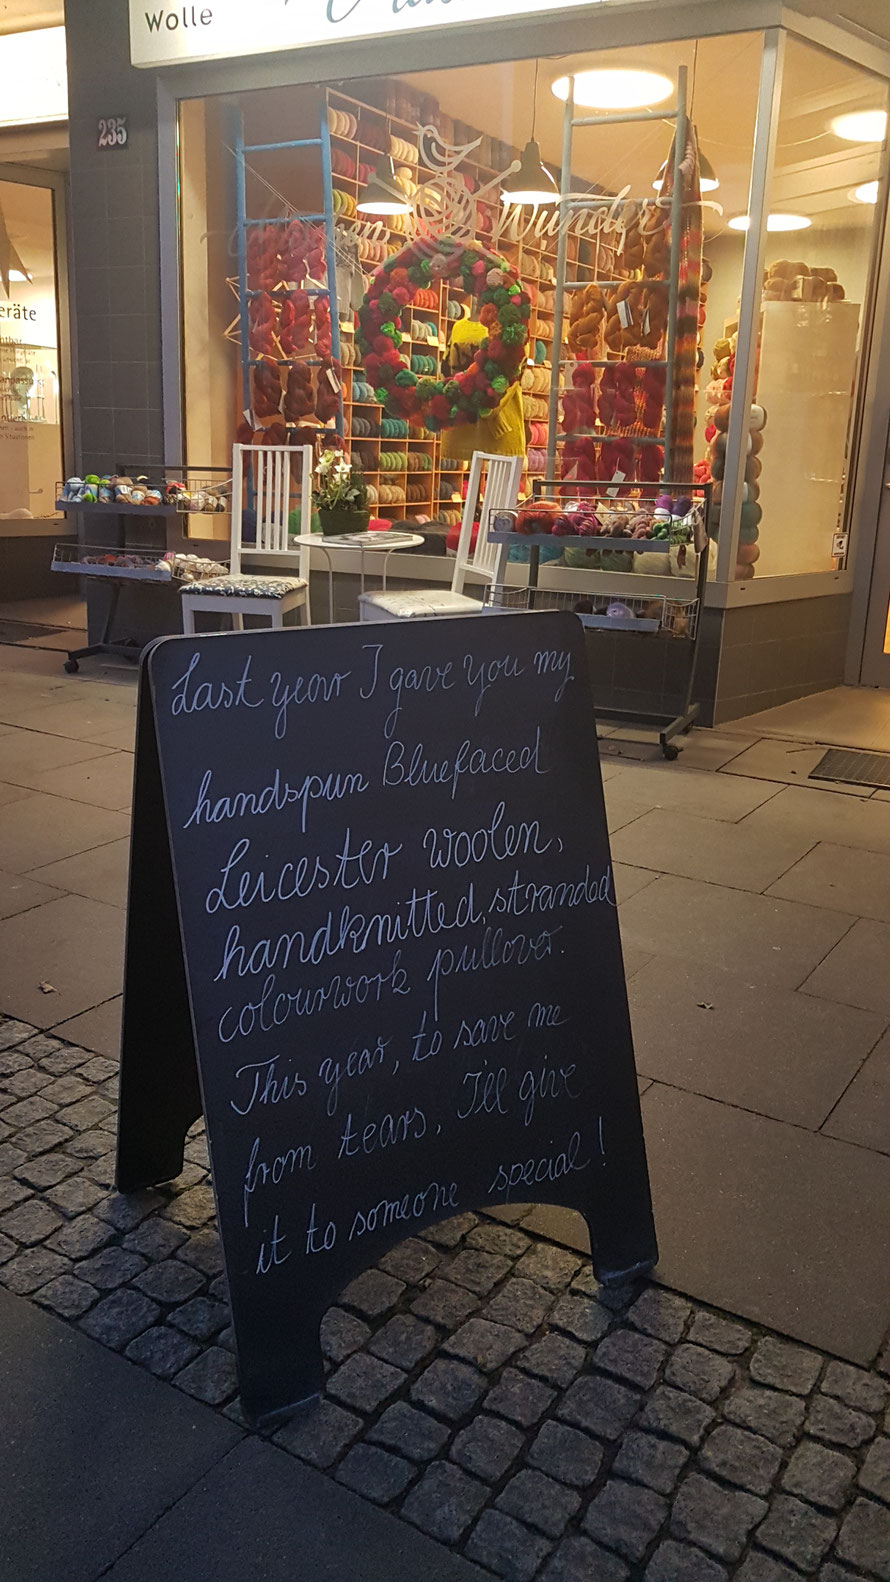 Wolle
235
Maschen Wunder
eräte
Last year I gave you my
handspun Bluefaced
Leicester woolen,
handknitted, stranded
colourwork pullover.
This year, to save me
from tears, I'll give
it to someone special!